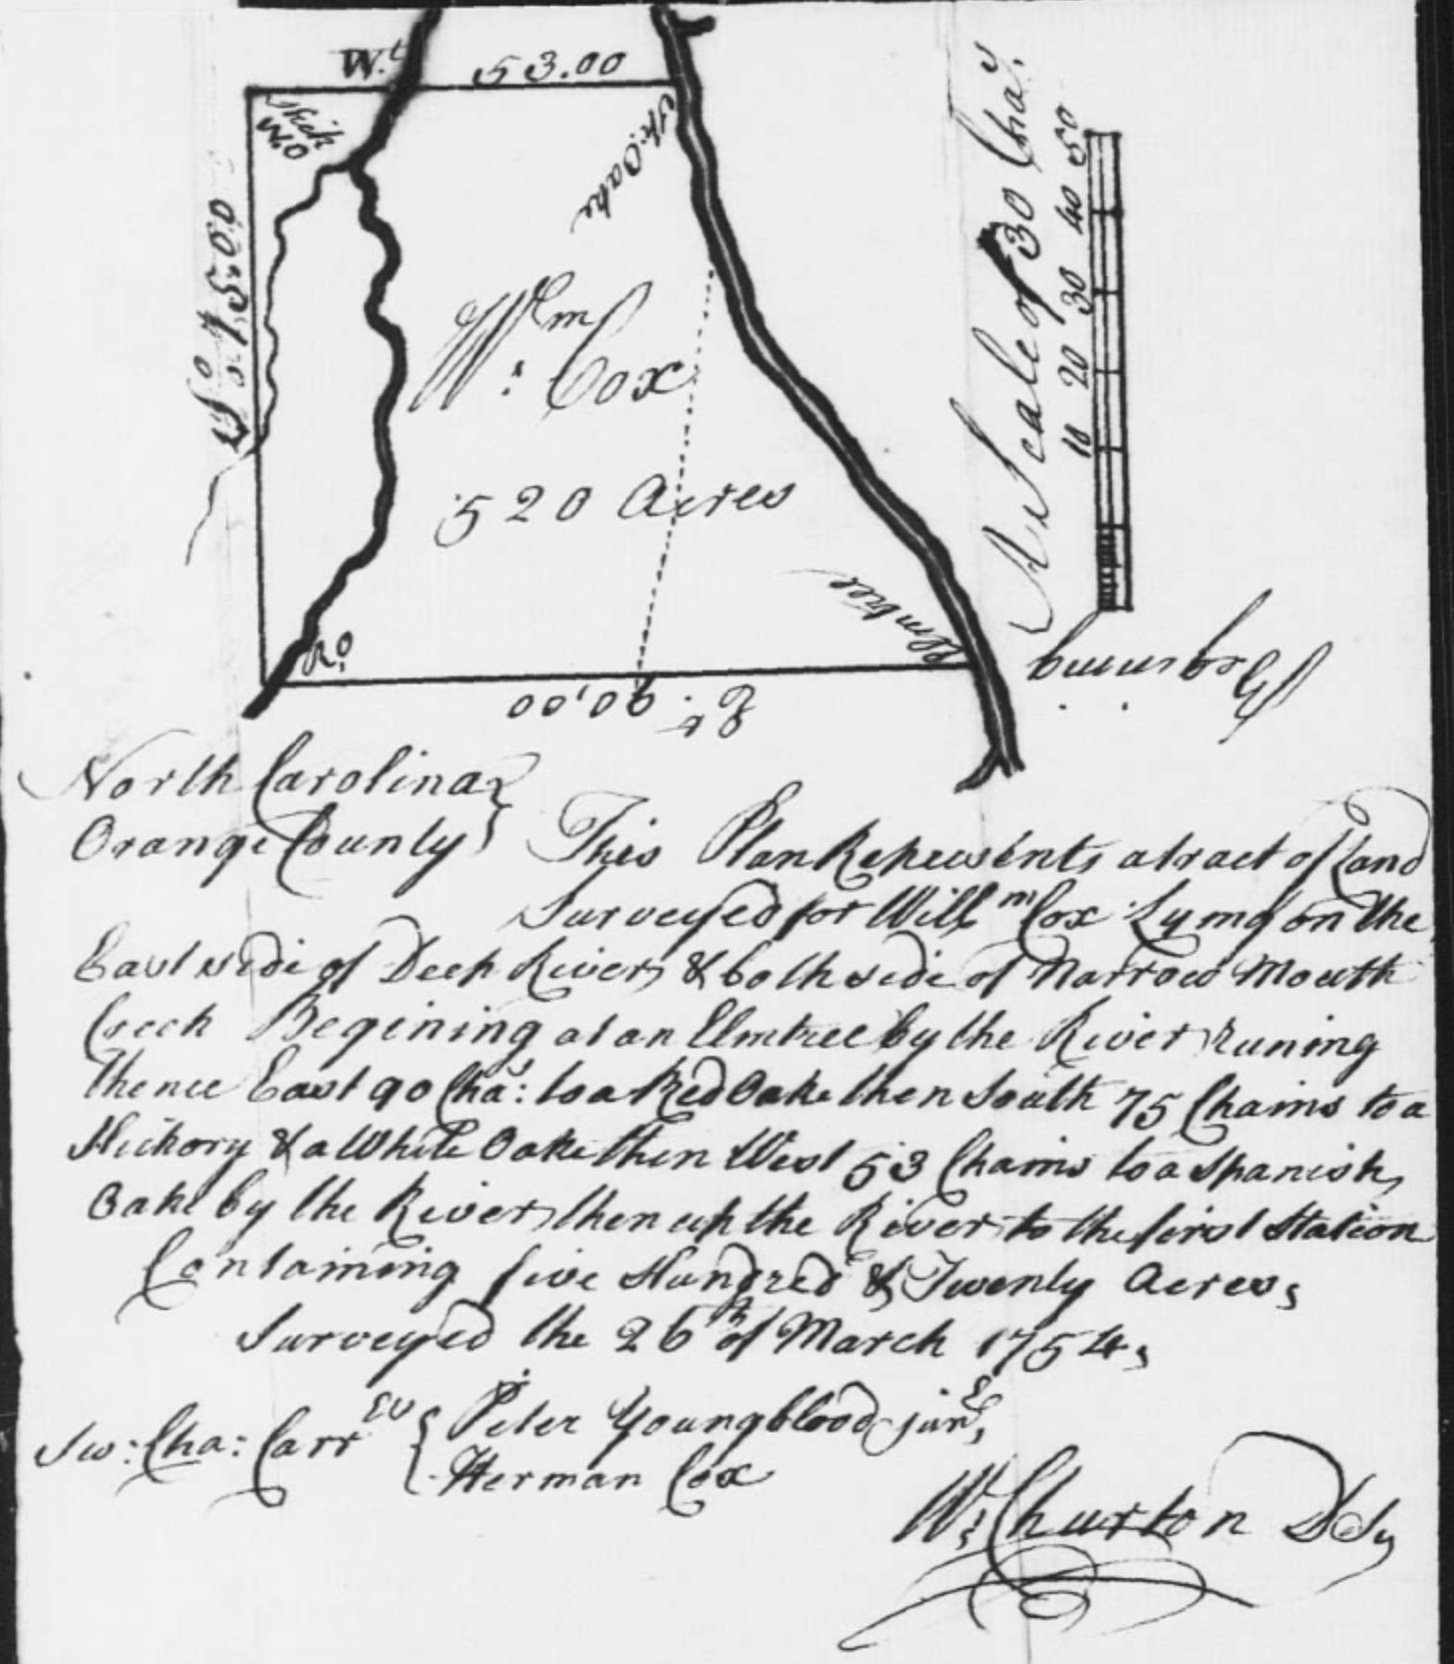 W.t 53.00
Hick
W.O
Sp: Oake
So. 75.00
Wm. Cox
520 Acres
Elmtree
R.O
Et. 90.00
Begining
A Scale of 30 Chas.
10 20 30 40 50
North Carolina
Orange County } This Plan Represents a tract of Land
Surveyed for Willm Cox Lying on the
East side of Deep River, & both side of Narrow Mouth
Creek Begining at an Elmtree by the River runing
thence East 90 Chas: to a Red Oake then South 75 Chains to a
Hickory & a White Oake then West 53 Chains to a Spanish,
Oake by the River, then up the River to the first Station
Containing five Hundred & Twenty Acres,
Surveyed the 26th of March 1754,
Sw: Cha: Carr { Peter Youngblood jun,
Herman Cox
W: Churton DSy